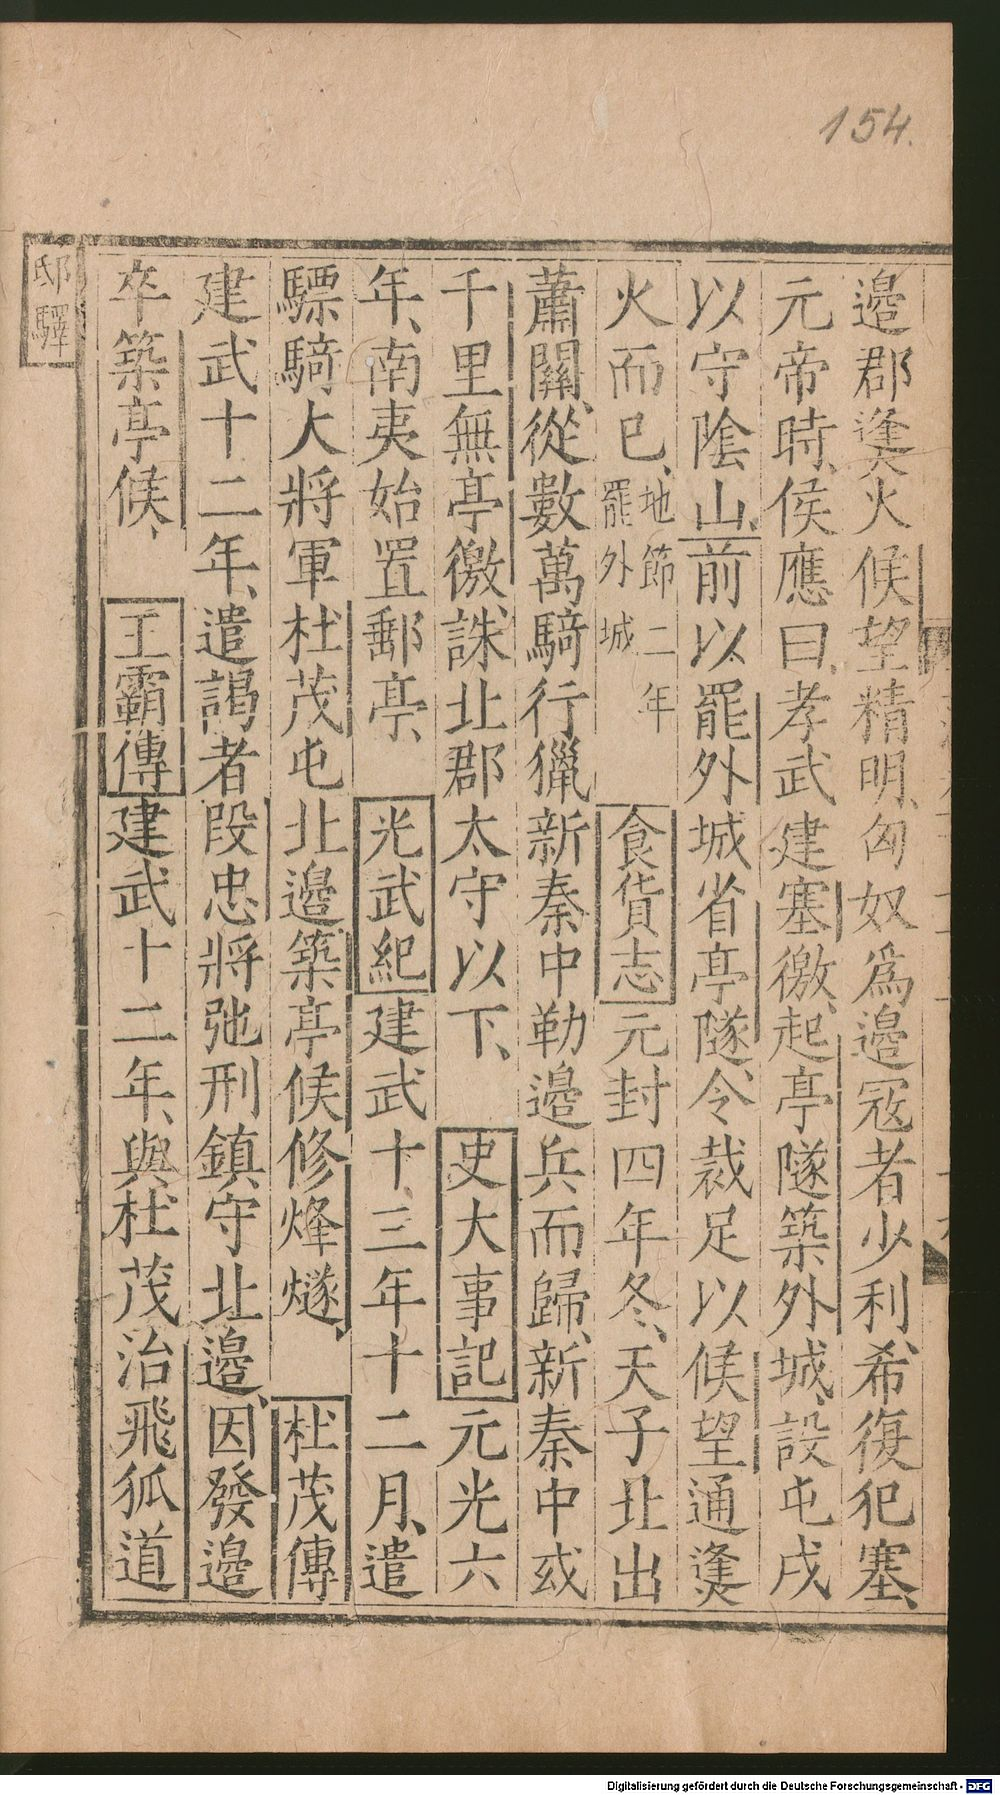 154.
邊郡逢火候望精明、匈奴爲邊寇者少利、希復犯塞、
元帝時、侯應曰、孝武建塞徼、起亭隧、築外城、設屯戌
以守陰山、前以罷外城省亭隧、令裁足以候望通逢
火而已、地節二年罷外城 食貨志元封四年冬、天子北出
蕭關、從數萬騎行獵新秦中勒邊兵而歸、新秦中或
千里無亭徼、誅北郡太守以下、 史大事記元光六
年、南夷始置郵亭、 光武紀建武十三年十二月、遣
驃騎大將軍杜茂屯北邊築亭候修烽燧、 杜茂傳
建武十二年、遣謁者段忠將弛刑鎮守北邊、因發邊
卒築亭候、 王霸傳建武十二年、與杜茂治飛狐道
邸驛
Digitalisierung gefördert durch die Deutsche Forschungsgemeinschaft - DFG